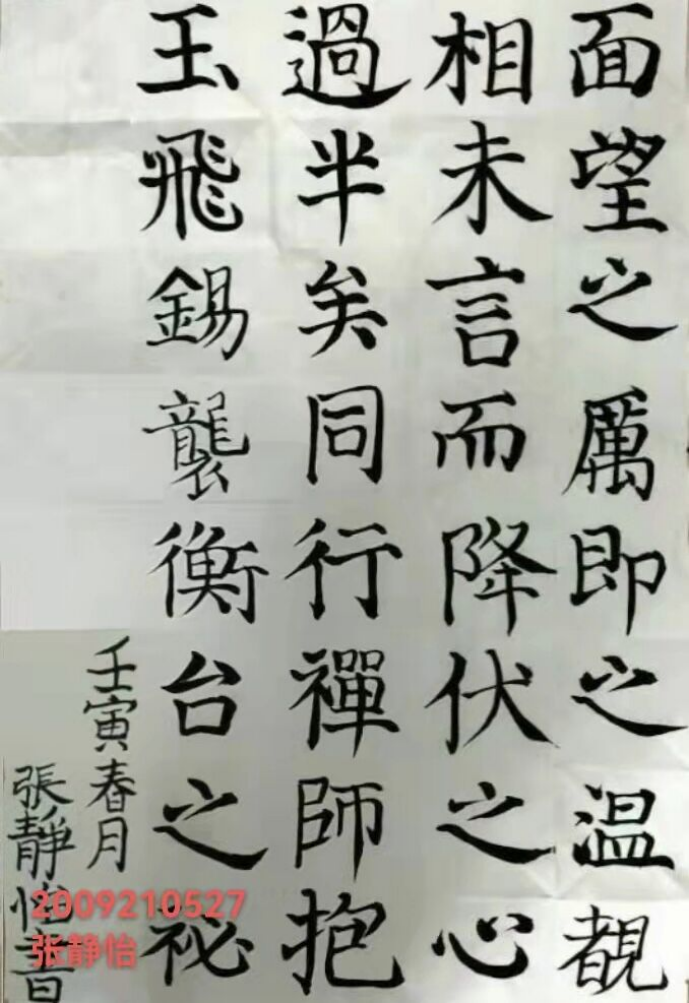 面望之厲即之温覩
相未言而降伏之心
過半矣同行禪師抱
玉飛錫襲衡台之祕
壬寅春月
張靜怡書
2009210527
张静怡